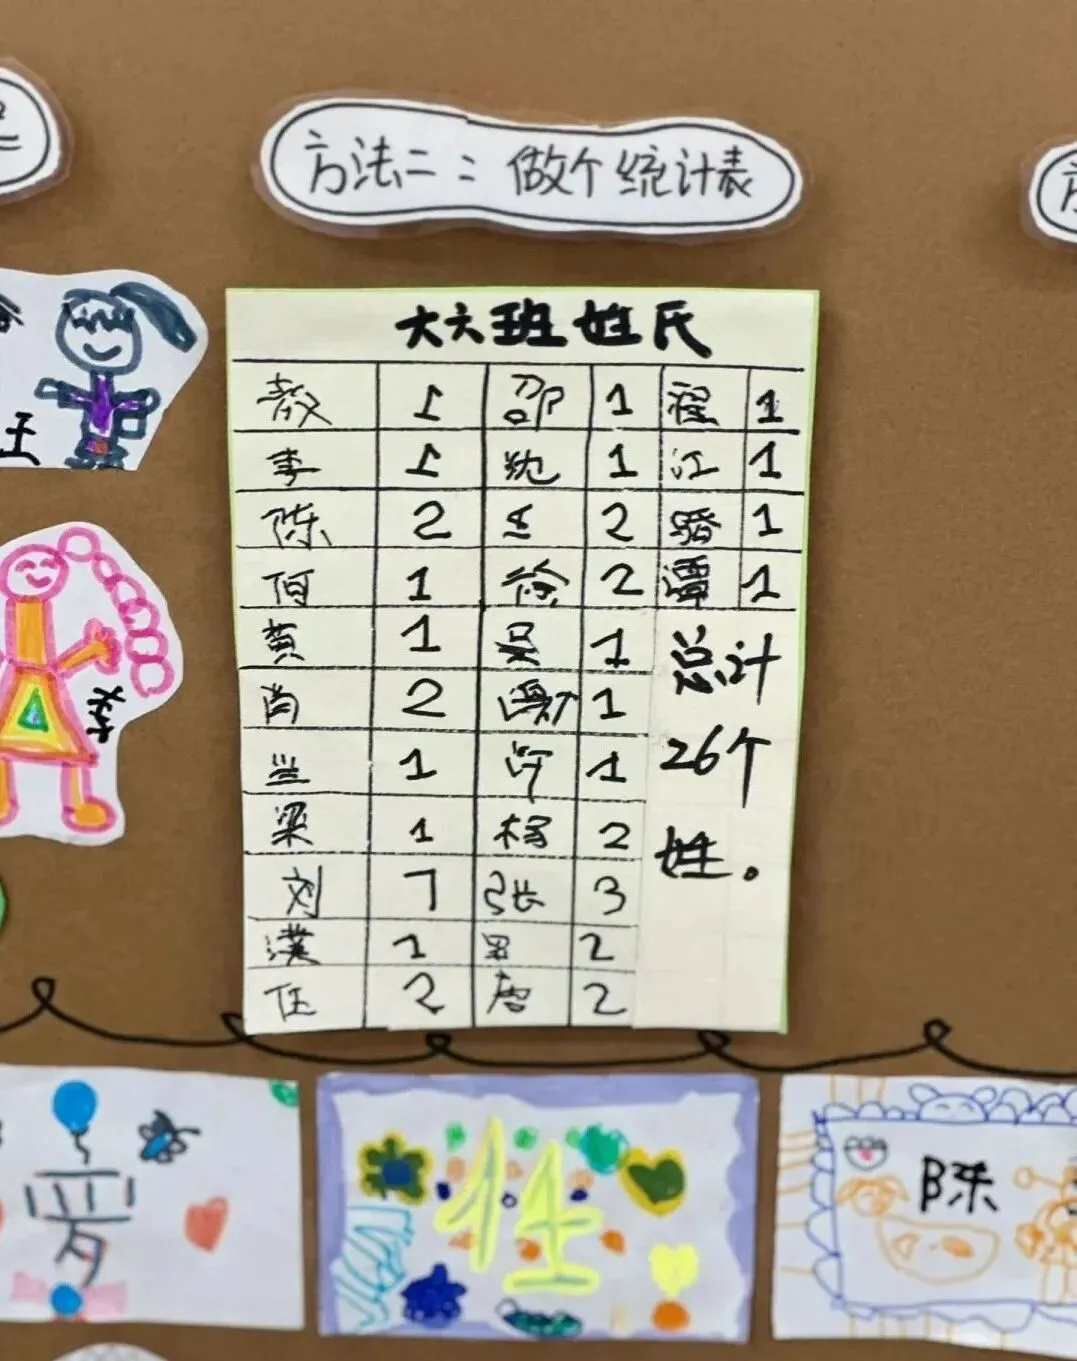 方法二：做个统计表
大六班姓氏
敖 1 邵 1 程 1
李 1 沈 1 江 1
陈 2 2 骆 1
何 1 徐 2 谭 1
黄 1 吴 1 总计
肖 2 谢 1 26个
兰 1 许 1 姓。
梁 1 杨 2
刘 7 张 3
濮 1 2
任 2 唐 2
王
李
爱
陈